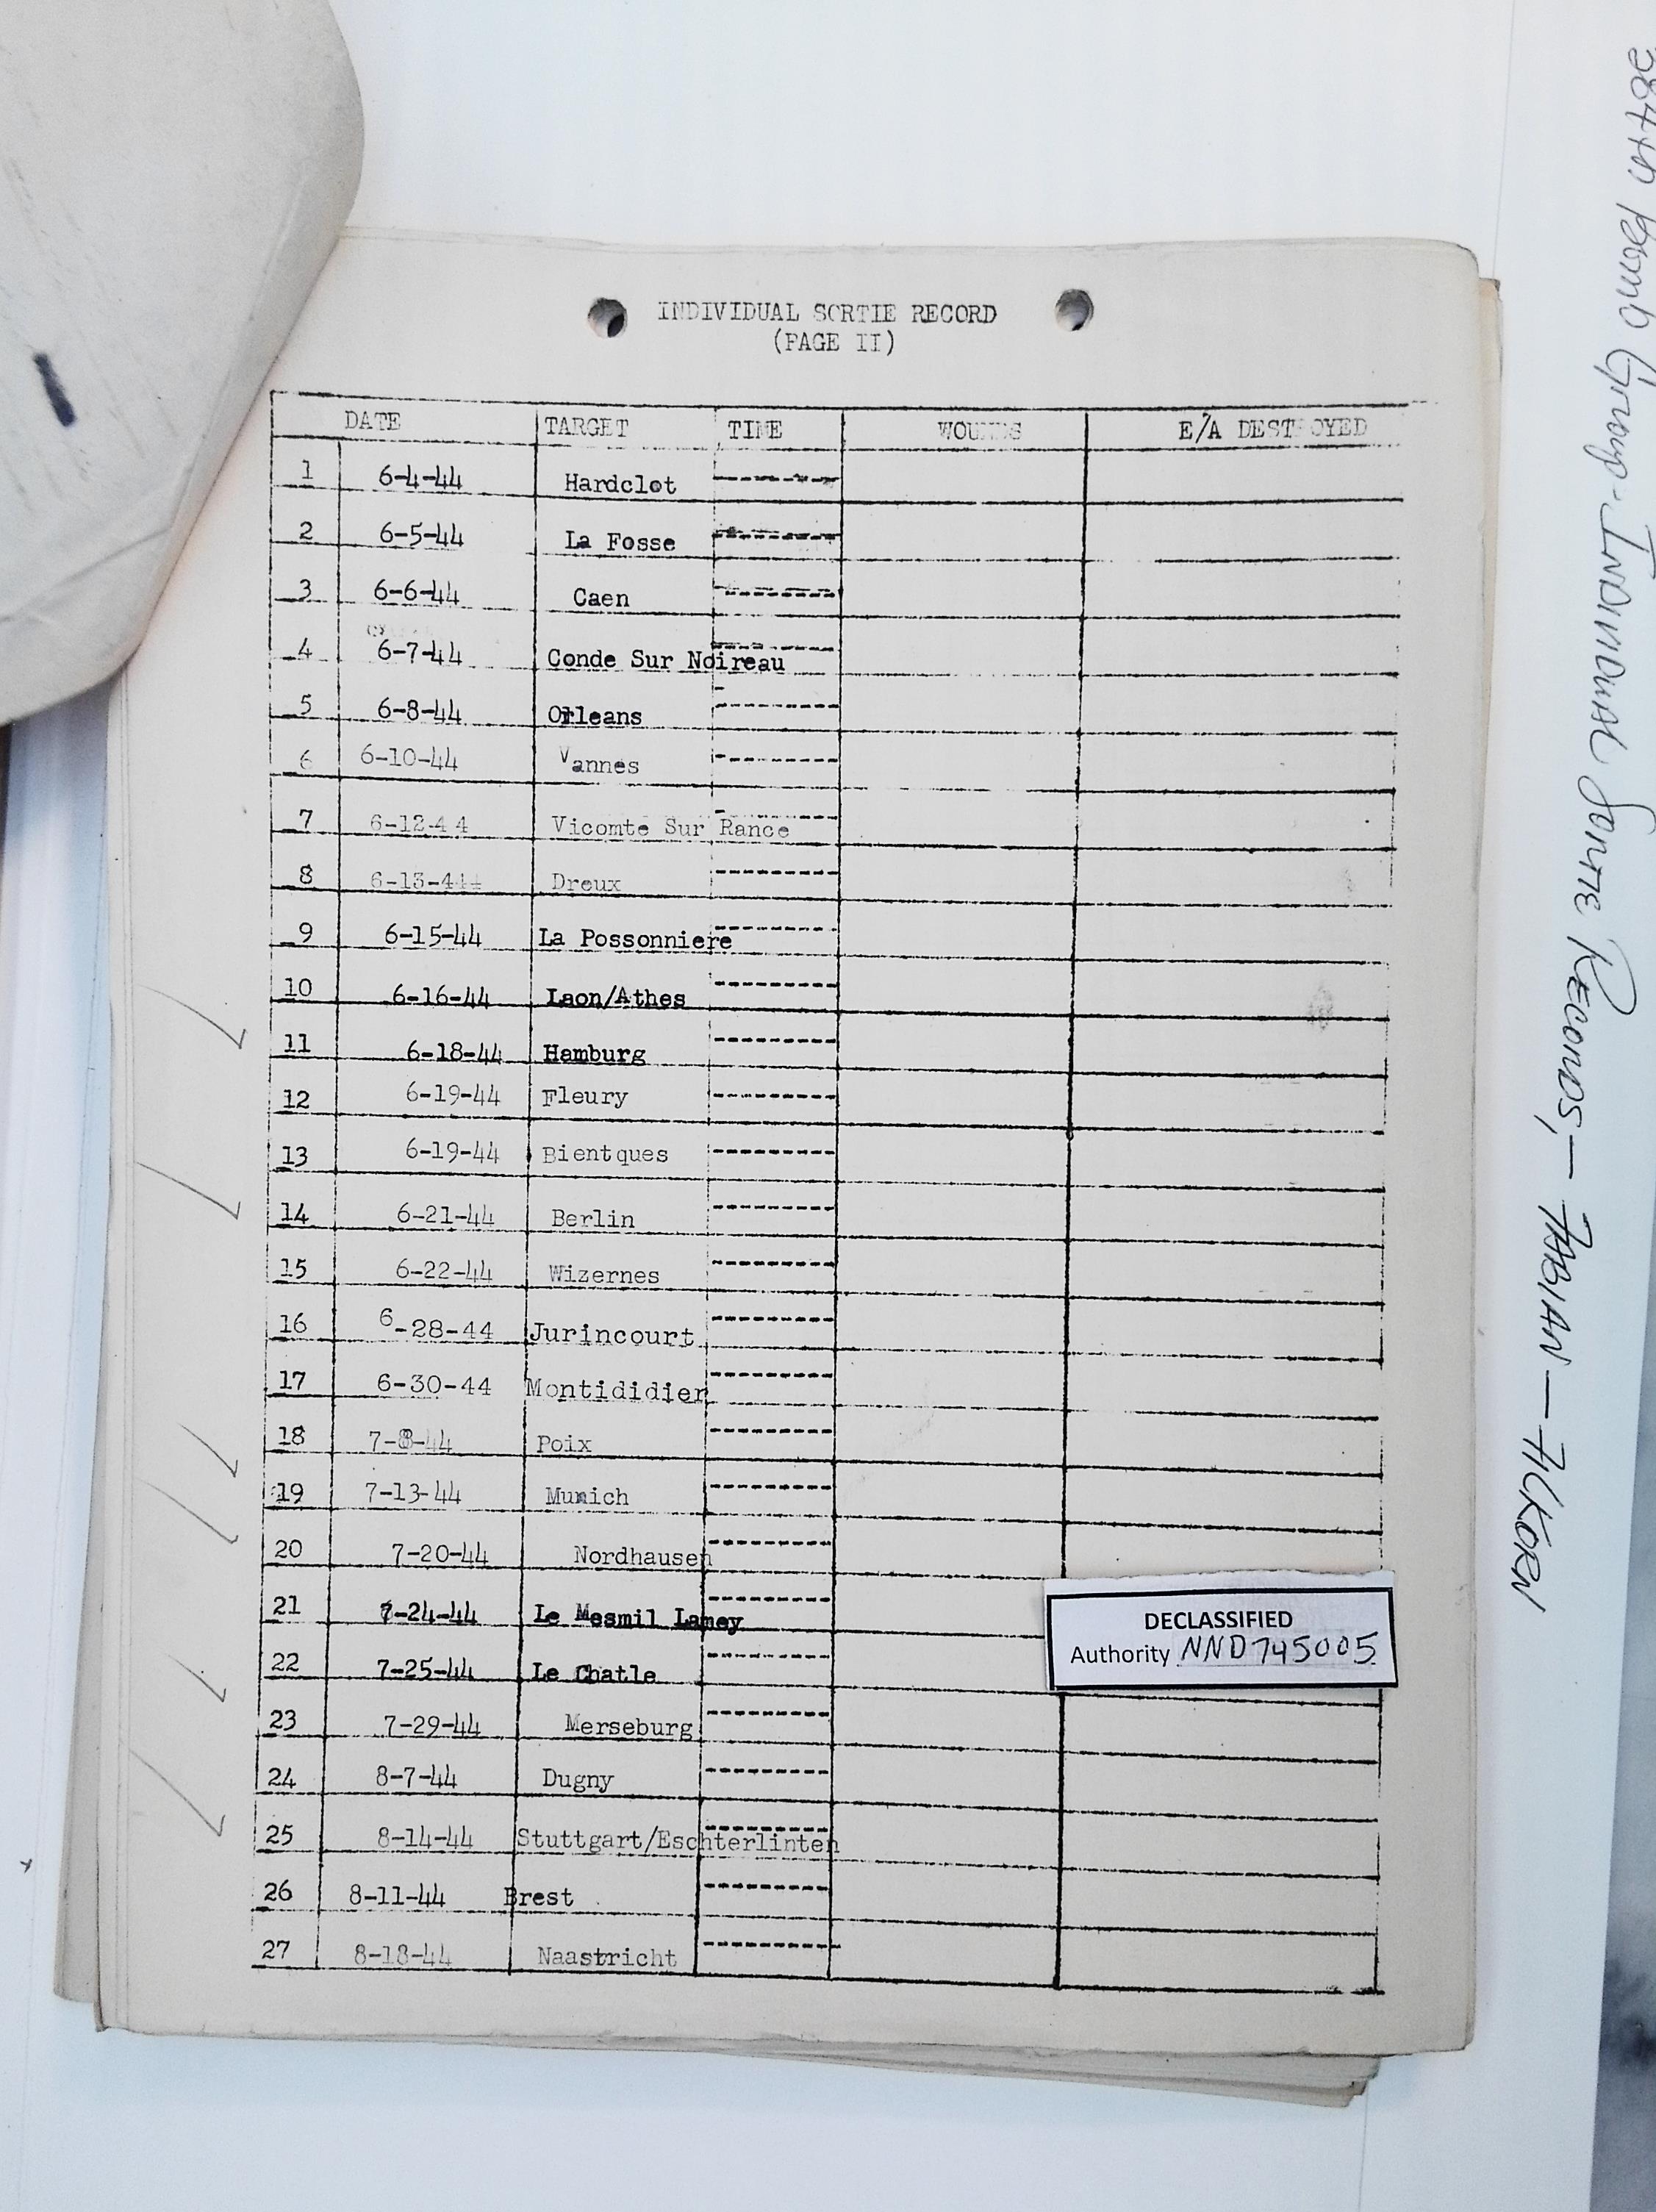 INDIVIDUAL SORTIE RECORD
(PAGE II)
DATE TARGET TIME WOUNDS E/A DESTROYED
1 6-4-44 Hardclot ----------
2 6-5-44 La Fosse ----------
3 6-6-44 Caen ----------
4 6-7-44 Conde Sur Noireau ----------
5 6-8-44 Orleans ----------
6 6-10-44 Vannes ----------
7 6-12-44 Vicomte Sur Rance ----------
8 6-13-44 Dreux ----------
9 6-15-44 La Possonniere ----------
10 6-16-44 Laon/Athes ----------
11 6-18-44 Hamburg ----------
12 6-19-44 Fleury ----------
13 6-19-44 Bientques ----------
14 6-21-44 Berlin ----------
15 6-22-44 Wizernes ----------
16 6-28-44 Jurincourt ----------
17 6-30-44 Montididier ----------
18 7-8-44 Poix ----------
19 7-13-44 Munich ----------
20 7-20-44 Nordhausen ----------
21 7-24-44 Le Mesmil Lamey ----------
22 7-25-44 Le Chatle ----------
23 7-29-44 Merseburg ----------
24 8-7-44 Dugny ----------
25 8-14-44 Stuttgart/Eschterlinten ----------
26 8-11-44 Brest ----------
27 8-18-44 Naastricht ----------
DECLASSIFIED
Authority NND745005
384th Bomb Group - Individual Sortie Records, - FABIAN - FICKORN